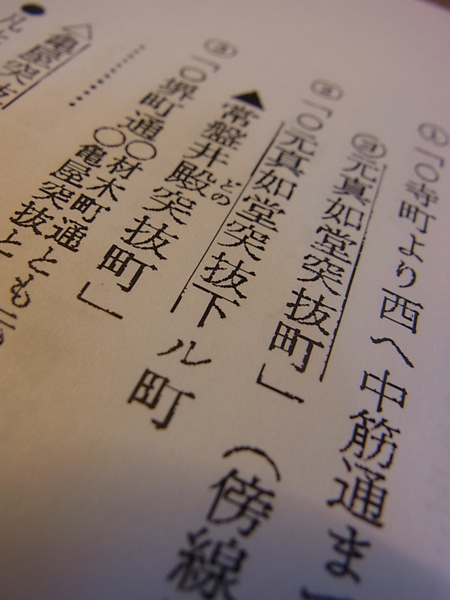 ①「〇寺町より西へ中筋通ま
元真如堂突抜町」(傍線
「〇元真如堂突抜下ル町
▲常盤井殿突抜町」
との
③「〇堺町通〇材木町通とも
〇亀屋突抜と
亀屋突抜